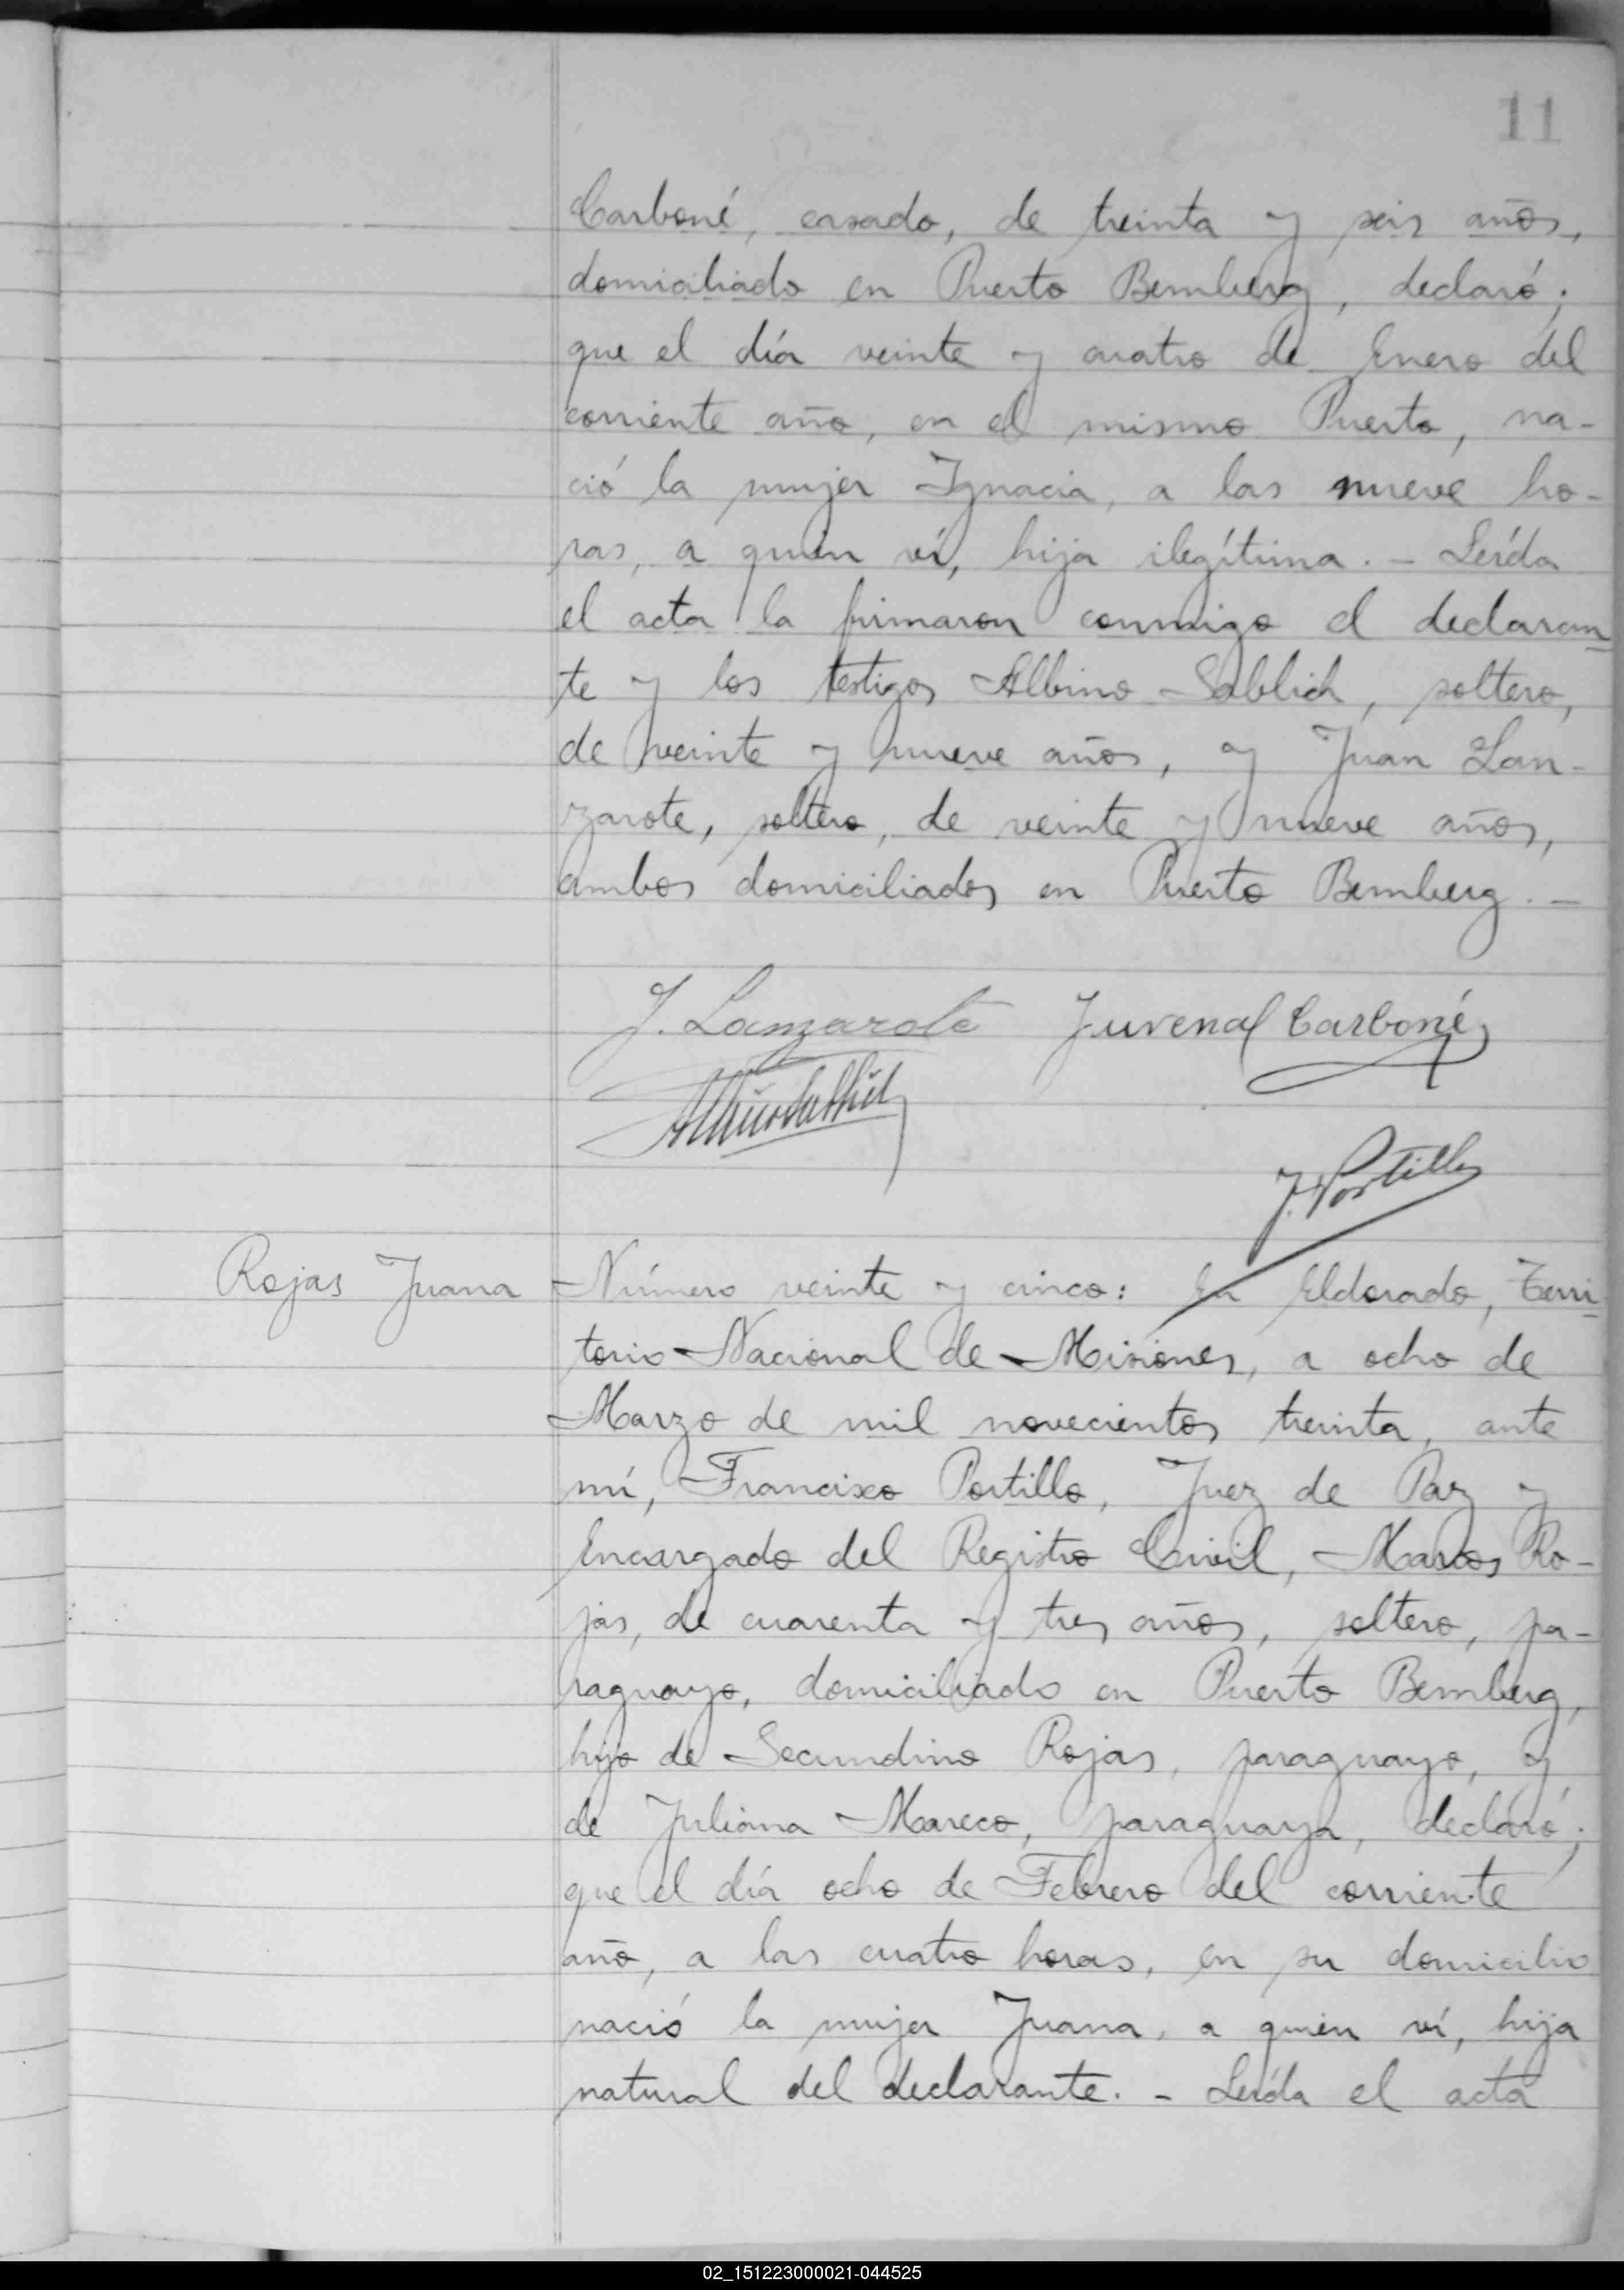 11
Carboné, casado, de treinta y seis años,
domiciliado en Puerto Bemberg, declaró;
que el día veinte y cuatro de Enero del
corriente año, en el mismo Puerto, na-
ció la mujer Ignacia, a las nueve ho-
ras, a quien ví, hija ilegítima. - Leída
el acta la firmaron conmigo el declaran
te y los testigos Albino Sablich, soltero,
de veinte y nueve años, y Juan Lan-
zarote, soltero, de veinte y nueve años,
ambos domiciliados en Puerto Bemberg. -
J. Lanzarote Juvenal Carboné
J. Portillo
Rojas Juana
Número veinte y cinco: En Eldorado, Terri
torio Nacional de Misiones, a ocho de
Marzo de mil novecientos treinta, ante
mí, Francisco Portillo, Juez de Paz y
Encargado del Registro Civil, Marcos Ro-
jas, de cuarenta y tres años, soltero, pa-
raguayo, domiciliado en Puerto Bemberg,
hijo de Secundino Rojas, paraguayo, y
de Juliana Mareco, paraguaya, declaró;
que el día ocho de Febrero del corriente
año, a las cuatro horas, en su domicilio
nació la mujer Juana, a quien ví, hija
natural del declarante. - Leída el acta
02_151223000021-044525